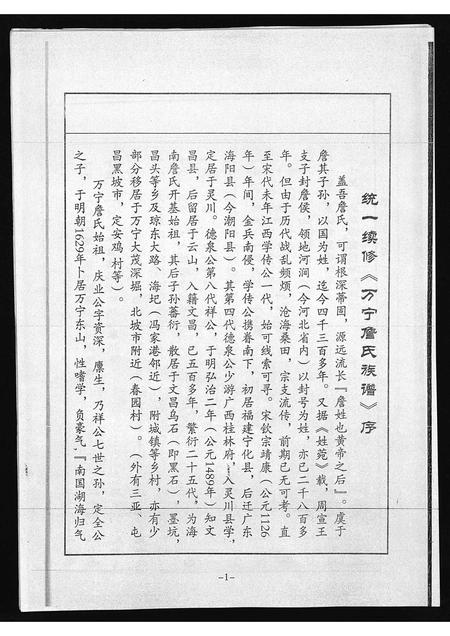 统一续修《万宁詹氏族谱》序
盖吾詹氏，可谓根深蒂固，源远流长『詹姓也黄帝之后』。虞于
詹其子孙，以国为姓，迄今四千三百多年。又据《姓苑》载，周宣王
支子封詹侯，领地河涧（今河北省内）以封号为姓，亦已二千八百多
年。但由于历代战乱频烦，沧海桑田，宗支流传，前期已无可考。直
至宋代末年江西学传公一代，始可线索可寻。宋钦宗靖康（公元1126
年）年间，金兵南侵，学传公携眷南下，初居福建宁化县，后迁广东
海阳县（今潮阳县）。其第四代德泉公少游广西桂林府，入灵川县学，
定居于灵川。德泉公第八代祥公，于明弘治二年（公元1489年）知文
昌县，后留居于云山，入籍文昌，已五百多年，繁衍二十五代，为海
南詹氏开基始祖，其后子孙蕃衍，散居于文昌乌石（即黑石），墨坑，
昌头等乡及琼东大路、海圯（冯家港邻近），附城镇等乡村，亦有少
部分移居于万宁大茂深堀，北坡市附近（春园村）。（外有三亚、屯
昌黑坡市，定安鸡村等）。
万宁詹氏始祖，庆业公字资深，廪生，乃祥公七世之孙，定全公
之子，于明朝1629年卜居万宁东山，性嗜学，负豪气，『南国湖海归气
-1-